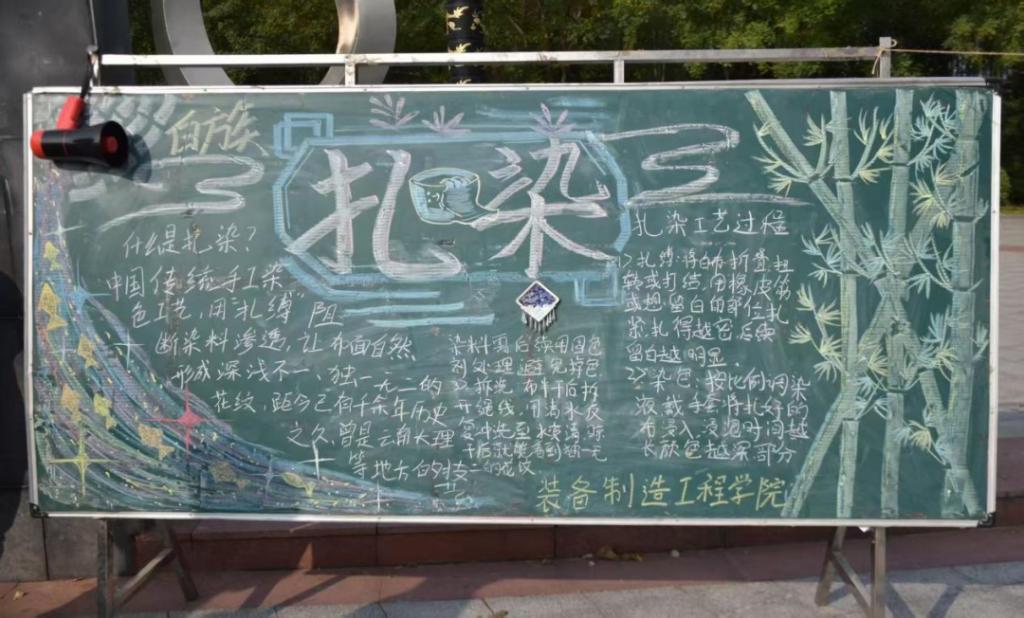 白族
扎染
什么是扎染？
中国传统手工染
色工艺，用“扎缚”阻
断染料渗透，让布面自然
形成深浅不一、独一无二的
花纹，距今已有千余年历史
之久，曾是云南大理
等地方的
扎染工艺过程
1>扎缚:将白布折叠扭
转或打结，用橡皮筋
或想留白的部位扎
紧扎得越密后续
留白越明显。
2>染色：按比例调染
液戴手套将扎好的
布浸入，浸泡时间越
长颜色越深部分
染料需后续用固色
剂处理避免掉色
3>拆洗：布干后拆
开绳线，用清水反
复冲洗至水变清，晾
干后就能看到独一无
二的花纹
装备制造工程学院